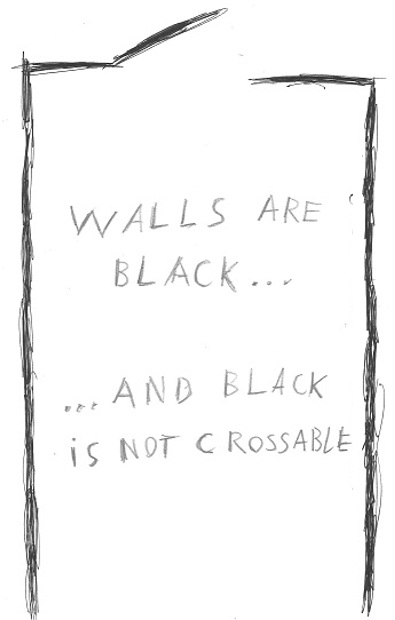 WALLS ARE
BLACK...
...AND BLACK
iS NOT CROSSABLE